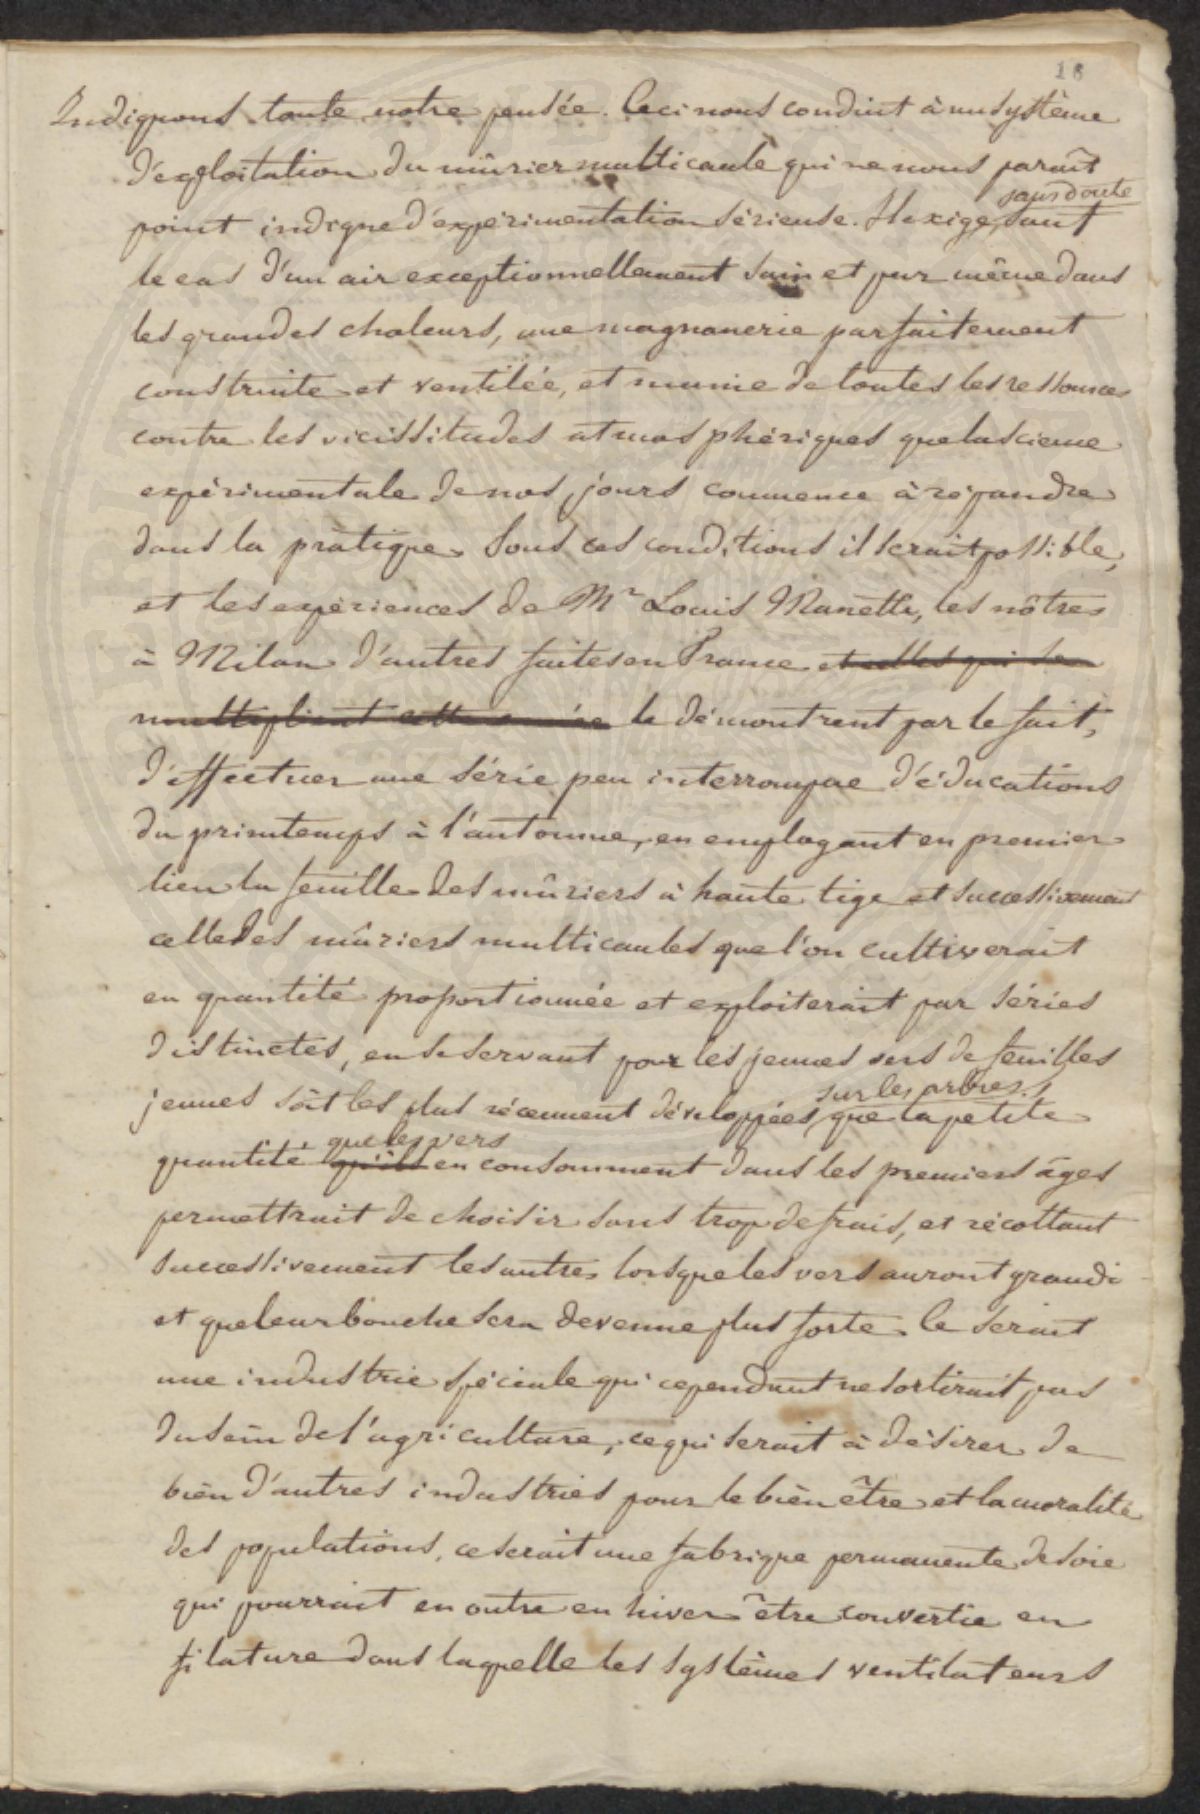 18
Indiquons toute notre pensée. Ceci nous conduit à un système
d'exploitation du mûrier multicaule qui ne nous paraît
point indigne d'expérimentation sérieuse. Il exige, sans doute sauf
le cas d'un air exceptionnellement sain et pur même dans
les grandes chaleurs, une magnanerie parfaitement
construite et ventilée, et munie de toutes les ressources
contre les vicissitudes atmosphériques que la science
expérimentale de nos jours commence à répandre
dans la pratique. Sous ces conditions il serait possible,
et les expériences de Mr Louis les nôtres
à Milan d'autres faites en France et celles qui se
multiplient cette année le démontrent par le fait,
d'effectuer une série peu interrompue d'éducations
du printemps à l'automne, en employant en premier
lieu la feuille des mûriers à haute tige et successivement
celle des mûriers multicaules que l'on cultiverait
en quantité proportionnée et exploiterait par séries
distinctes, en se servant pour les jeunes vers de feuilles
jeunes soit les plus récemment développées sur les arbres, que la petite
quantité qu'ils que les vers en consomment dans les premiers âges
permettrait de choisir sans trop de frais, et récoltant
successivement les autres lorsque les vers auront grandi
et que leur bouche sera devenue plus forte. Ce serait
une industrie spéciale qui cependant ne sortirait pas
du sein de l'agriculture, ce qui serait à désirer de
bien d'autres industries pour le bien être et la moralité
des populations, ce serait une fabrique permanente de soie
qui pourrait en outre en hiver être convertie en
filature dans laquelle les systèmes ventilateurs